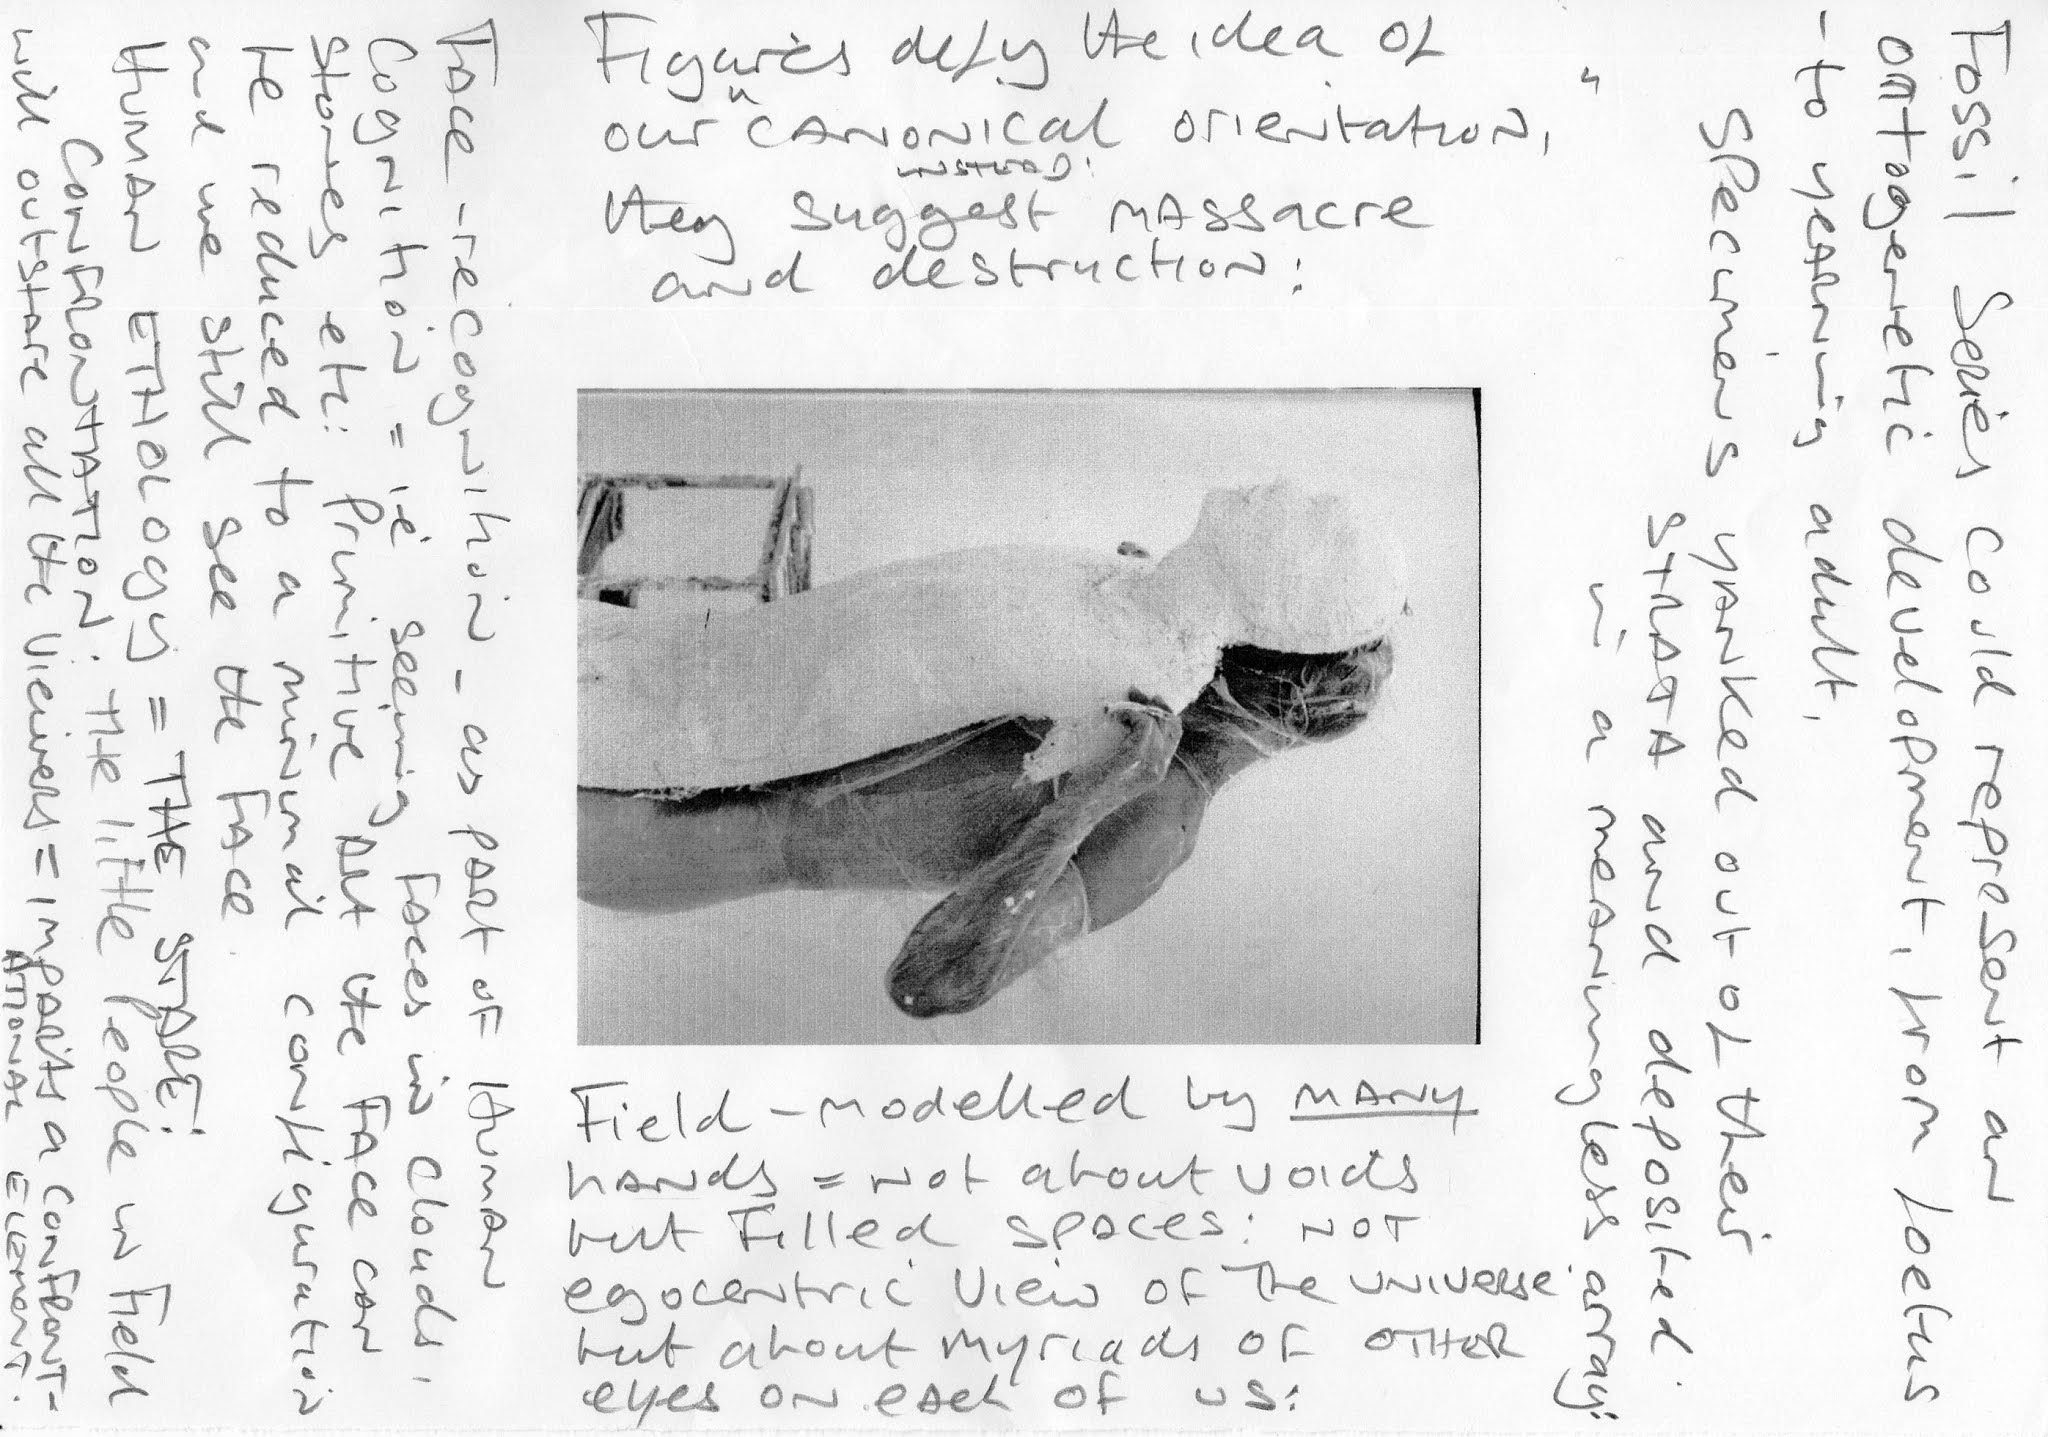 Figures defy the idea of
our "CANONICAL orientation,"
INSTEAD:
they suggest MASSACRE
and destruction:
Field-modelled by MANY
HANDS = NOT about voids
but Filled spaces: NOT
egocentric view of the UNIVERSE
but about myriads of OTHER
eyes on each of us:
Fossil Series could represent an
ontogenetic development, from foetus
- to yearning adult,
Specimens yanked out of their
STRATA and deposited
in a meaningless array:
FACE-recognition - as part of HUMAN
Cognition = ie seeing faces in clouds,
stones etc: primitive ART the FACE can
be reduced to a minimal configuration
and we still see the FACE
HUMAN ETHOLOGY = THE STARE:
CONFRONTATION: THE little People in Field
will outstare all the viewers = imparts a CONFRONT-
ATIONAL ELEMENT.